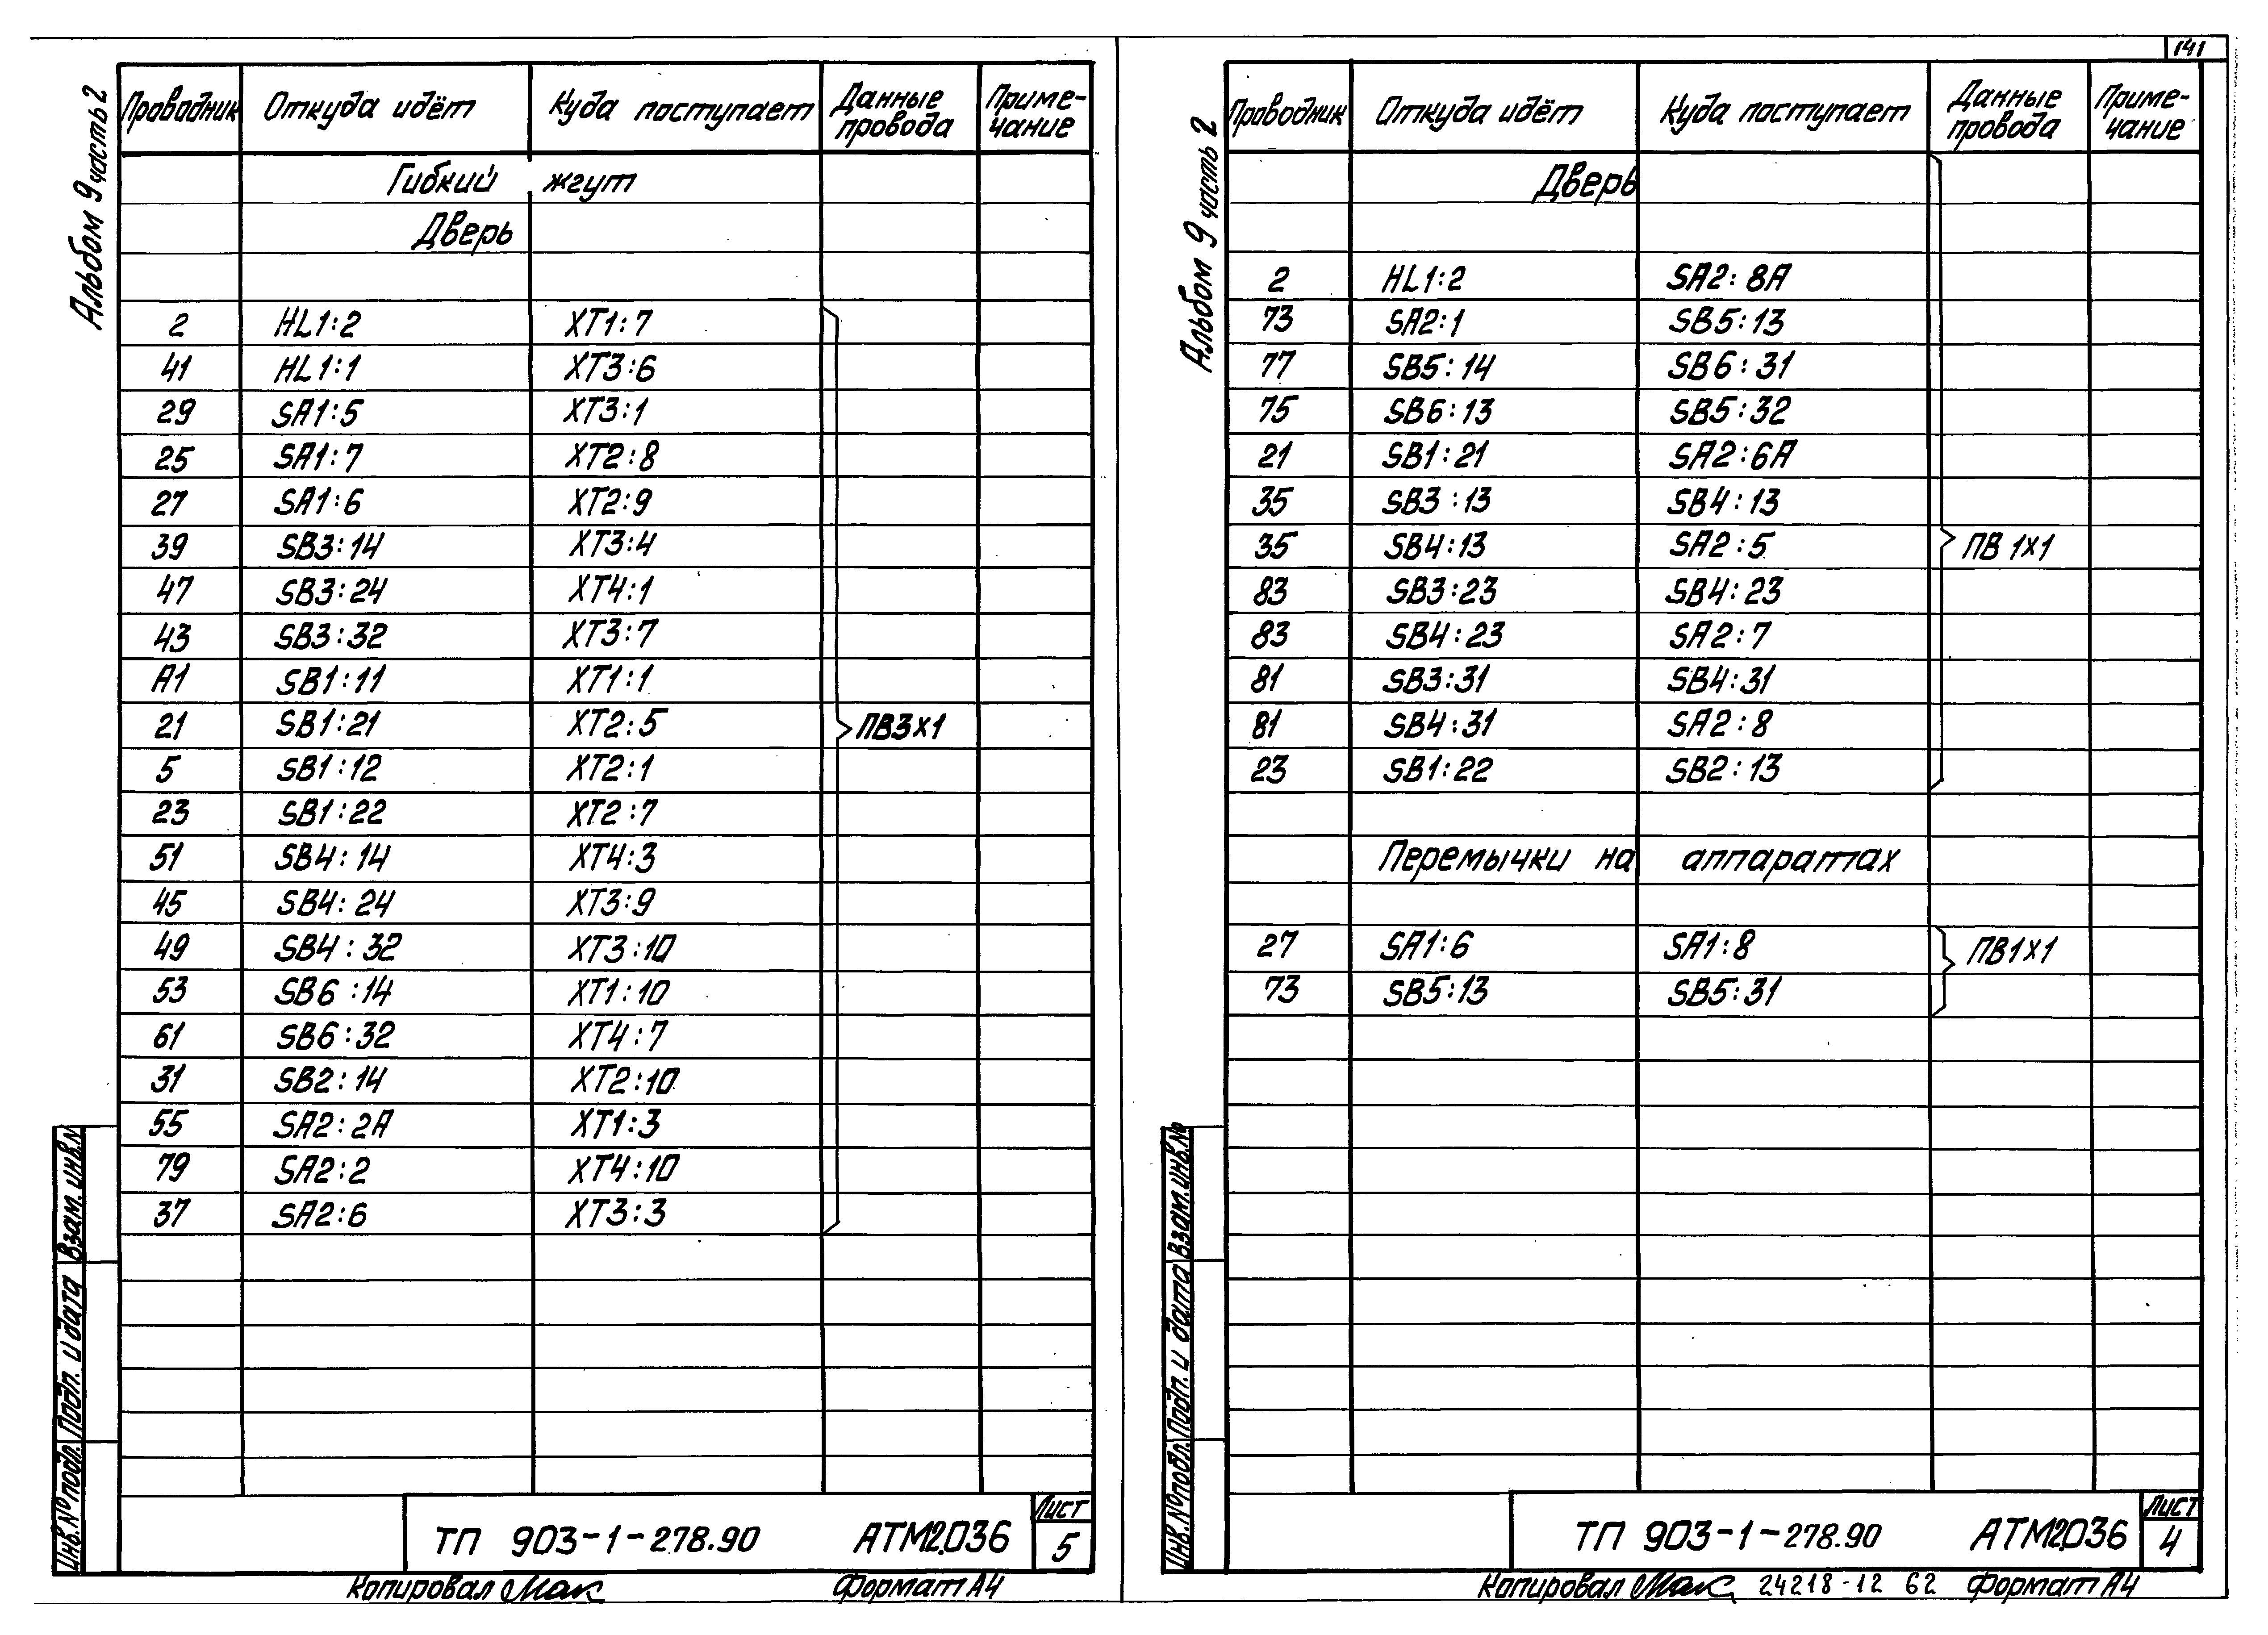 141
Альбом 9 часть 2
Проводник Откуда идёт Куда поступает Данные провода Приме-чание
Гибкий жгут
Дверь
2 HL1:2 XT1:7
41 HL1:1 XT3:6
29 SA1:5 XT3:1
25 SA1:7 XT2:8
27 SA1:6 XT2:9
39 SB3:14 XT3:4
47 SB3:24 XT4:1
43 SB3:32 XT3:7
A1 SB1:11 XT1:1
21 SB1:21 XT2:5 ПВ3х1
5 SB1:12 XT2:1
23 SB1:22 XT2:7
51 SB4:14 XT4:3
45 SB4:24 XT3:9
49 SB4:32 XT3:10
53 SB6:14 XT1:10
61 SB6:32 XT4:7
31 SB2:14 XT2:10
55 SA2:2A XT1:3
79 SA2:2 XT4:10
37 SA2:6 XT3:3
Инв.№подл. Подп. и дата Взам.инв.№
ТП 903-1-278.90 АТМ2.036 Лист 5
Копировал Мак Формат А4
Альбом 9 часть 2
Проводник Откуда идёт Куда поступает Данные провода Приме-чание
Дверь
2 HL1:2 SA2:8A
73 SA2:1 SB5:13
77 SB5:14 SB6:31
75 SB6:13 SB5:32
21 SB1:21 SA2:6A
35 SB3:13 SB4:13
35 SB4:13 SA2:5 ПВ 1х1
83 SB3:23 SB4:23
83 SB4:23 SA2:7
81 SB3:31 SB4:31
81 SB4:31 SA2:8
23 SB1:22 SB2:13
Перемычки на аппаратах
27 SA1:6 SA1:8 ПВ1х1
73 SB5:13 SB5:31
Инв.№подл. Подп. и дата Взам.инв.№
ТП 903-1-278.90 АТМ2.036 Лист 4
Копировал Мак 24218-12 62 Формат А4